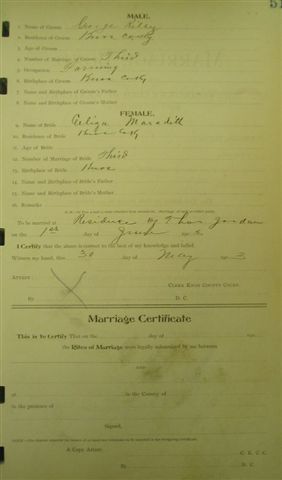 MALE.
1. Name of Groom George
2. Residence of Groom Knox Co Ky
3. Age of Groom
4. Number of Marriage of Groom Third
5. Occupation Farming
6. Birthplace of Groom Knox Co Ky
7. Name and Birthplace of Groom's Father
8. Name and Birthplace of Groom's Mother
FEMALE.
9. Name of Bride Meredith
10. Residence of Bride Knox Co Ky
11. Age of Bride
12. Number of Marriage of Bride Third
13. Birthplace of Bride Knox
14. Name and Birthplace of Bride's Father
15. Name and Birthplace of Bride's Mother
16. Remarks
To be married at Residence of Jordan
on the 1st day of June 190
I Certify that the above is correct to the best of my knowledge and belief.
Witness my hand, this 30 day of May 190 3
Attest:
Clerk Knox County Court.
By D. C.
Marriage Certificate
This is to Certify That on the day of 190
the Rites of Marriage were legally solemnized by me between
and
at in the County of
in the presence of
Signed,
A Copy Attest: C. K. C. C.
By D. C.